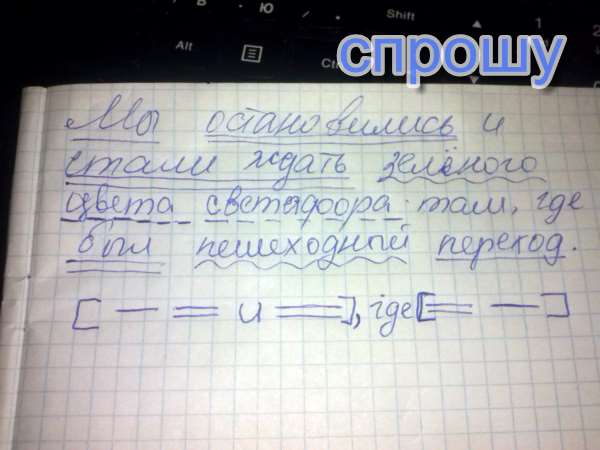 Shift
1
Alt
Ctrl
спрошу
Мы остановились и
стали ждать зелёного
цвета светофора там, где
был пешеходный переход.
[ — = и = ], где [ = — ]